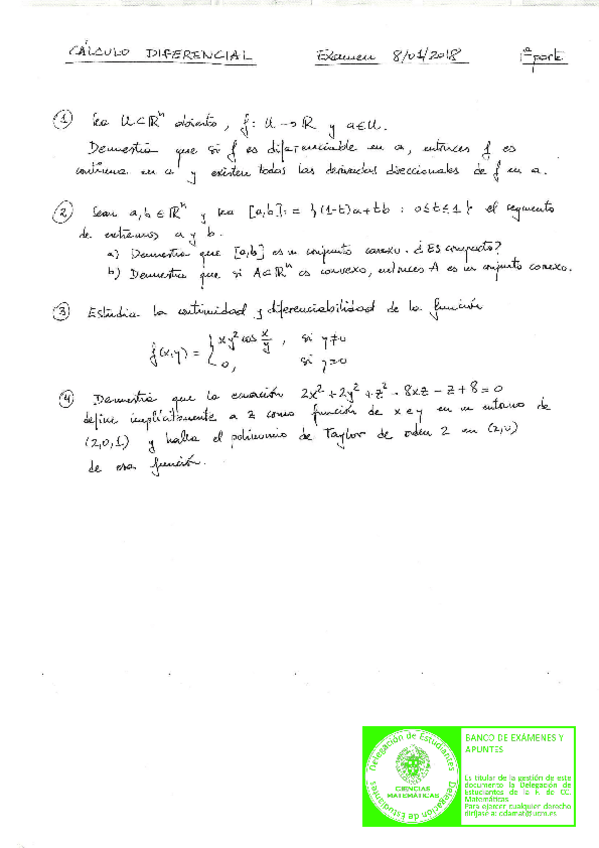 CÁLCULO DIFERENCIAL Examen 8/01/2018 1ª parte
① Sea U⊂ℝⁿ abierto, f: U → ℝ y a∈U.
Demuestra que si f es diferenciable en a, entonces f es
continua en a y existen todas las derivadas direccionales de f en a.
② Sean a,b ∈ ℝⁿ y sea [a,b] := {(1-t)a+tb : 0≤t≤1} el segmento
de extremos a y b.
a) Demuestra que [a,b] es un conjunto conexo. ¿Es compacto?
b) Demuestra que si A⊂ℝⁿ es convexo, entonces A es un conjunto conexo.
③ Estudia la continuidad y diferenciabilidad de la función
f(x,y) = { xy² cos x/y , si y≠0
0, si y=0
④ Demuestra que la ecuación 2x² + 2y² + z² - 8xz - z + 8 = 0
define implícitamente a z como función de x e y en un entorno de
(2,0,1) y halla el polinomio de Taylor de orden 2 en (2,0)
de esa función.
Delegación de Estudiantes
CIENCIAS
MATEMÁTICAS
Delegación de Estudiantes
BANCO DE EXÁMENES Y
APUNTES
Es titular de la gestión de este
documento la Delegación de
Estudiantes de la F. de CC.
Matemáticas.
Para ejercer cualquier derecho
diríjase a: